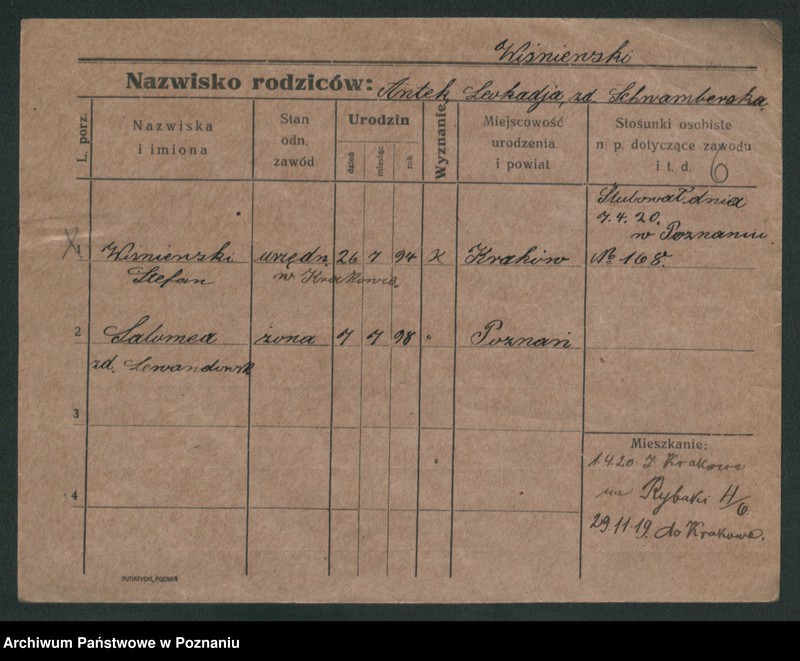 Wiśniewski
Nazwisko rodziców: Antek Leokadja, zd. Schwamberska
L. porz.
Nazwiska
i imiona
Stan
odn.
zawód
Urodzin
dzień
miesiąc
rok
Wyznanie
Miejscowość
urodzenia
i powiat
Stosunki osobiste
n. p. dotyczące zawodu
i t. d. 6
Ślubował dnia
7. 4. 20.
w Poznaniu
1 Wiśniewski urzędn. 26 7 94 K Kraków № 168.
Stefan w Krakowie.
2 Salomea żona 7 7 98 " Poznań
zd. Lewandowsk
3
Mieszkanie:
1.4.20. Z Krakowa
na Rybaki 4/6
4
29.11.19. do Krakowa.
PUTIATYCKI, POZNAŃ
Archiwum Państwowe w Poznaniu